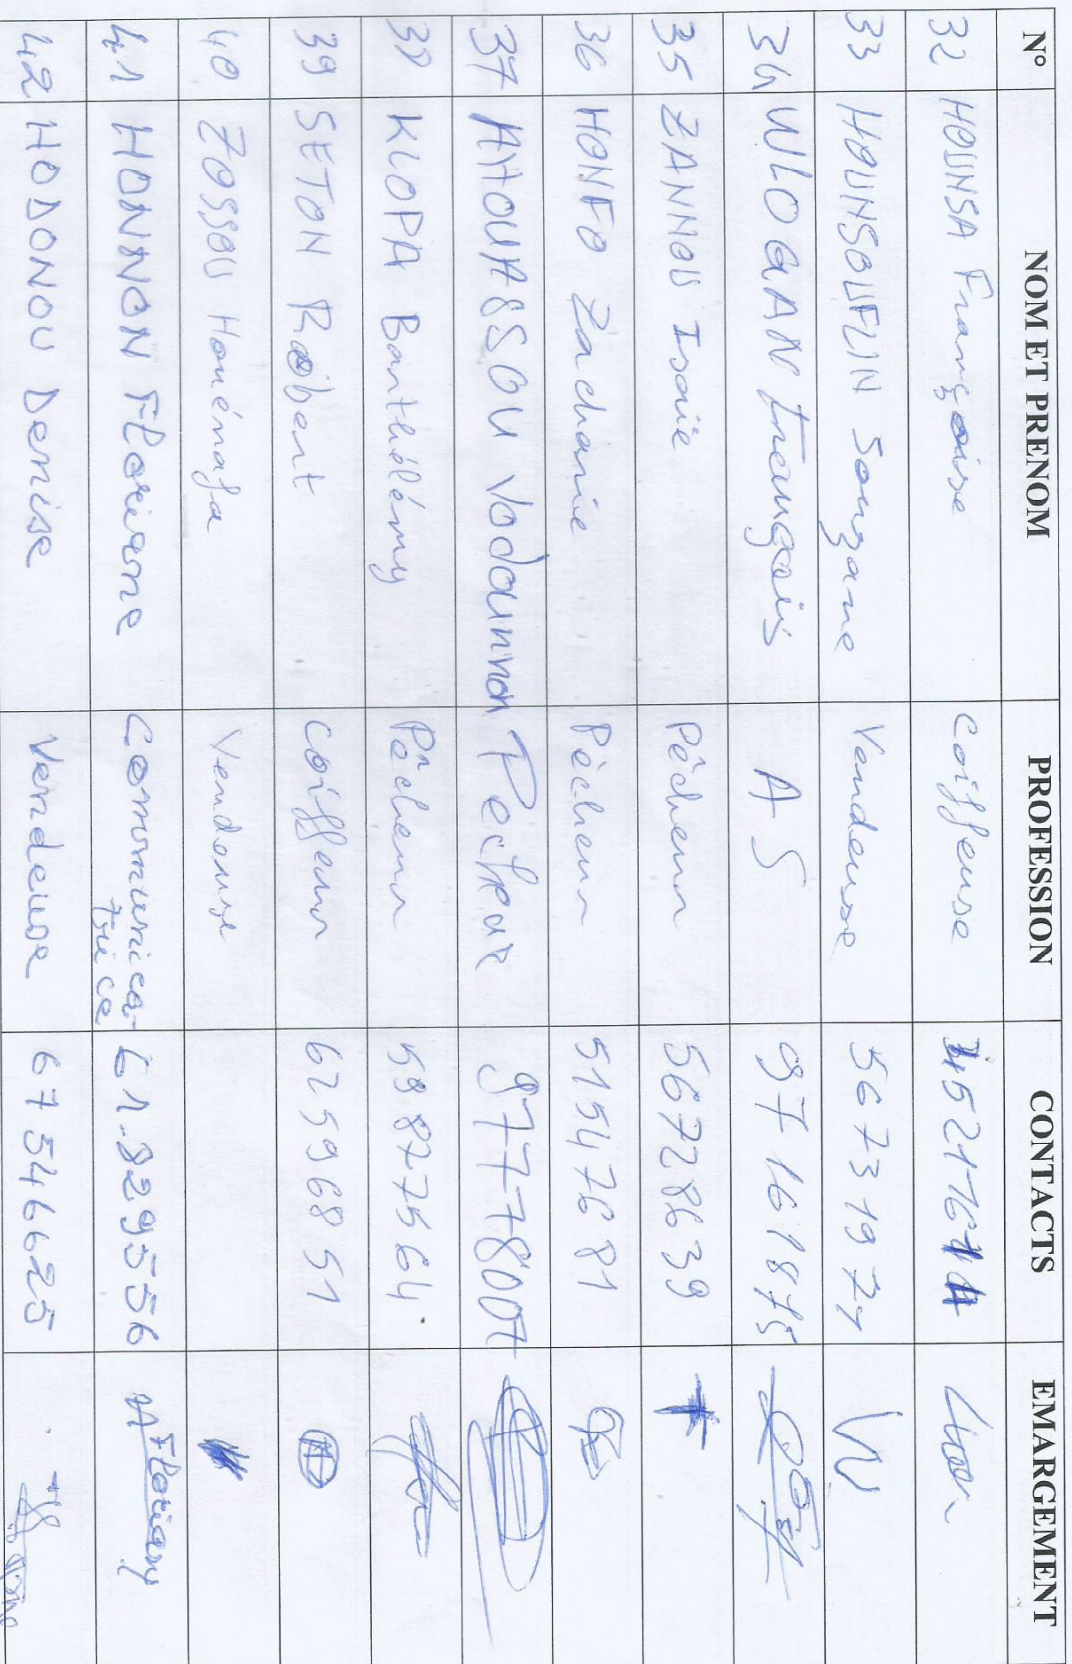 N° NOM ET PRENOM PROFESSION CONTACTS EMARGEMENT
32 HOUNSA Françoise Coiffeuse
33 HOUNSOUFLIN Souzane Vendeuse 56731971
34 ULO GAN François AS 97161875
35 ZANNOU Isaïe Pêcheur 56728639
36 HONFO Zacharie Pêcheur 51547681
37 AHOUASSOU Vodounnon Pecheur 97778007
38 KLOPA Barthélémy Pêcheur 59877564
39 SETON Robert Coiffeur 62596851
40 ZOSSOU Houénafa Vendeuse
41 HONNON Floriane Communica- 61.829556 Floriany
trice
42 HODONOU Denise Vendeuse 67546625